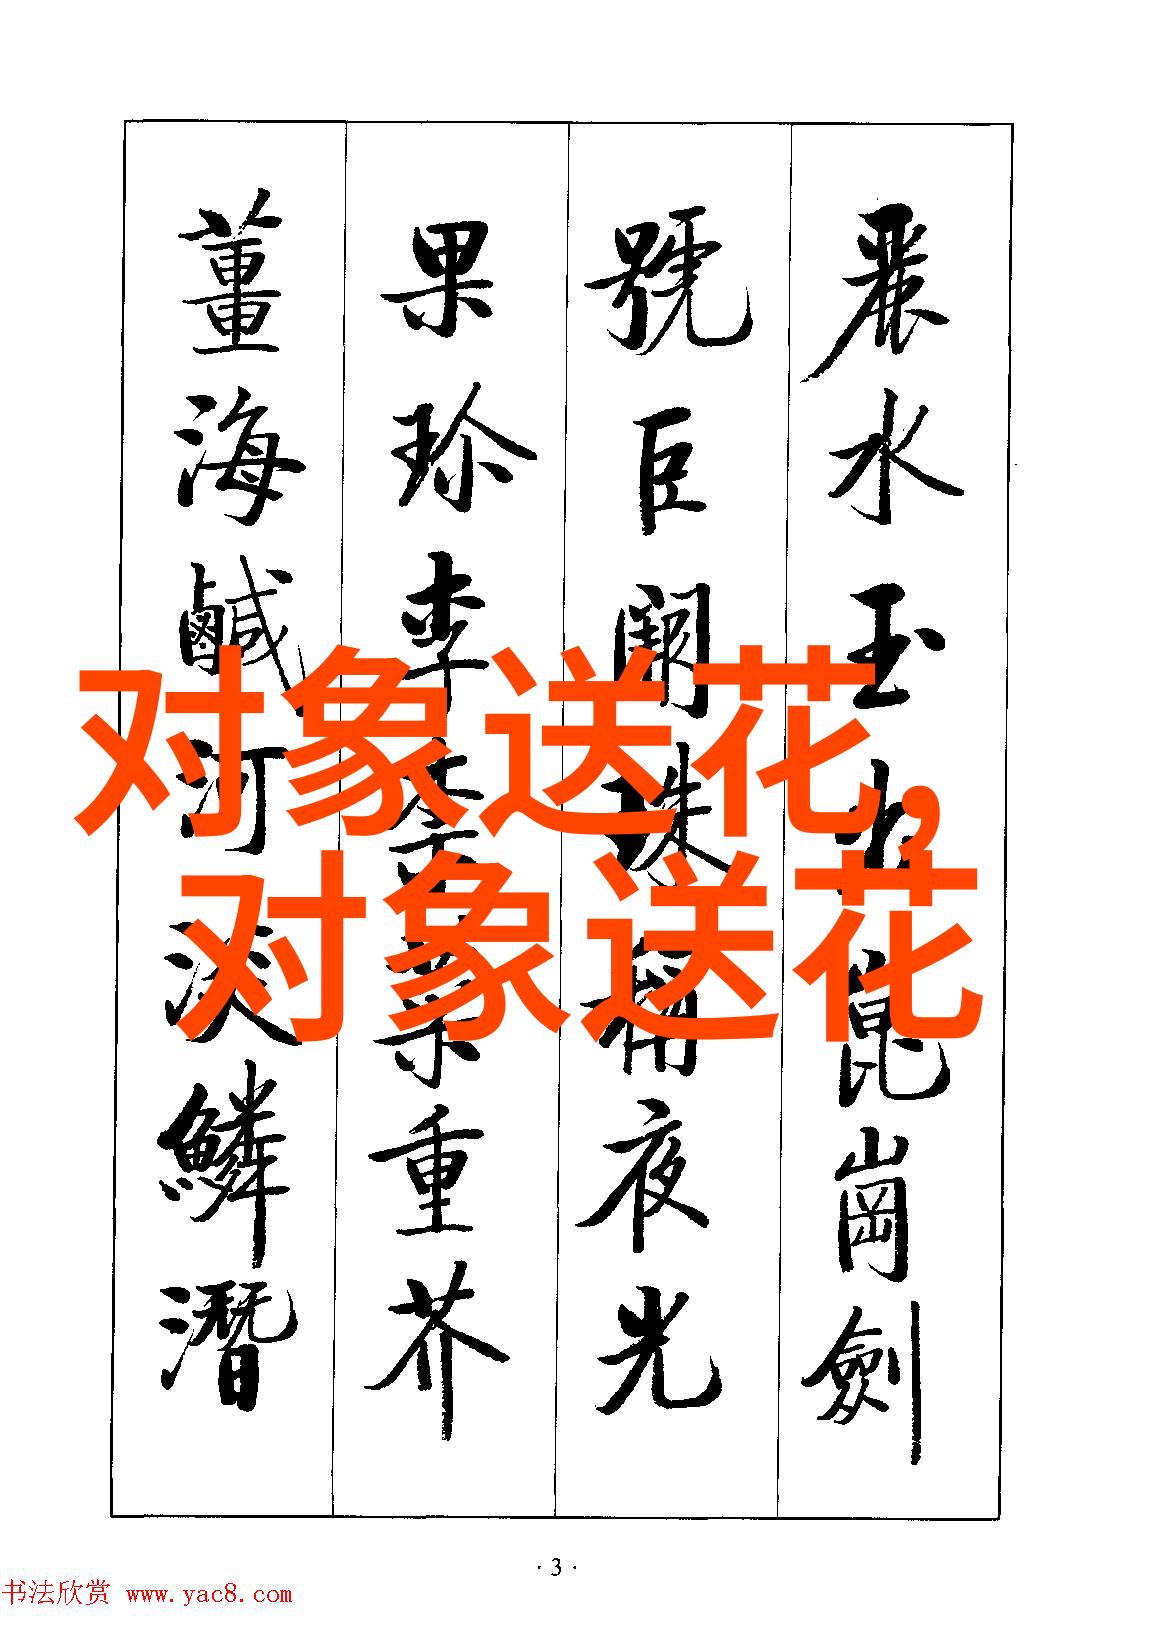 麗水玉出崑崗劍
號巨闕珠稱夜光
果珍李柰菜重芥
薑海鹹河淡鱗潛
对象送花,
对象送花
·3·
书法欣赏 www.yac8.com